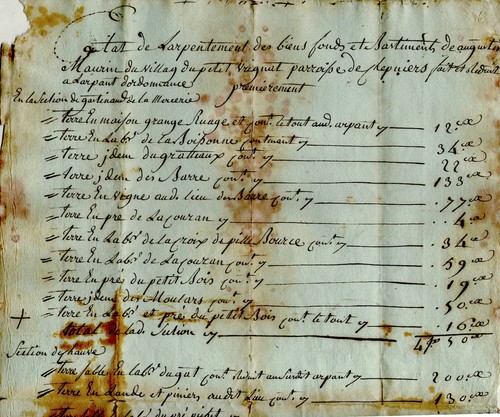 Etat de Larpentement des biens fonds et Bastiments de augustin
Maurin du villag du petit vregnut parroisse de Chepniers fait et Reduit
a Larpant dordonnance
premièrement
En la Section de gastenaud de la Mercerie
= terre En maison grange Ruage et cont. le tout aud. arpant y — 12.ce
= terre En Lab.r de la Boisonne contenant y — 34.ce
= terre jdem du gratteaux cont. y — 22.ce
= terre jdem des Barre cont. y — 133.ce
= terre En vigne aud. lieu des Barre cont. y — 77.ce
= terre En pre de Lacouzan y — 4.ce
= terre En Lab.r de la Croix de pille Bource cont. y — 34.ce
= terre En Lab.r de Lacouzan cont. y — 59.ce
= terre En prés du petit Bois cont. y — 19.ce
= terre jdem des Moutars cont. y — 50.ce
= terre En Lab.r et pré du petit Bois cont. le tout y — 16.ce
+ total de lad. Section y — 50.ce
Section de hauve
= terre En Lab.r du gat cont. Reduit arpant y — 200.ce
= terre En Lande et piniers audit Lieu cont. y — 130.ce